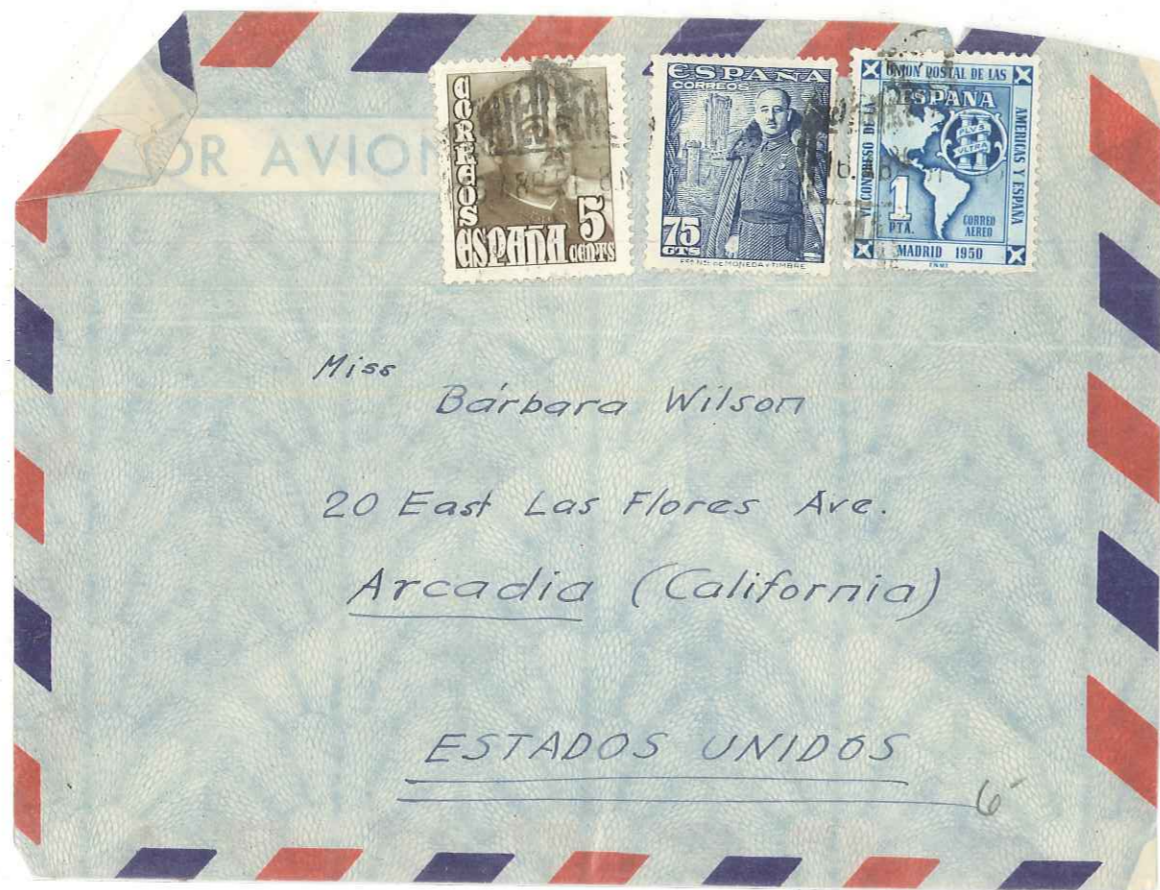 OR AVION
CORREOS
ESPAÑA 5 CENTS
ESPAÑA
CORREOS
75 CTS
VI CONGRESO DE LA UNION POSTAL DE LAS AMERICAS Y ESPAÑA
ESPAÑA
PLVS
VLTRA
1 PTA.
CORREO
AEREO
MADRID 1950
Miss
Bárbara Wilson
20 East Las Flores Ave.
Arcadia (California)
ESTADOS UNIDOS
6